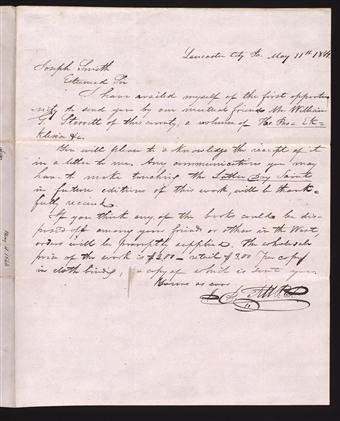 Lancaster City Pa. May 11th
Joseph Smith
Esteemed Sir
I have availed myself of the first opportu
nity to send you by our mutual friend Mr William
G. Sterrett of this county, a volume of He Pasa Ek-
klesia &c.
You will please to acknowledge the receipt of it
in a letter to me. Any communications you may
have to make touching the Latter Day Saints
in future editions of this work, will be thank-
fully received.
If you think any of the books could be dis-
posed of among your friends or others in the West,
orders will be promptly supplied. The wholesale
price of the work is $2.00 – retail $3.00 per copy
in cloth binding, a copy of which is sent you.
Yours as ever